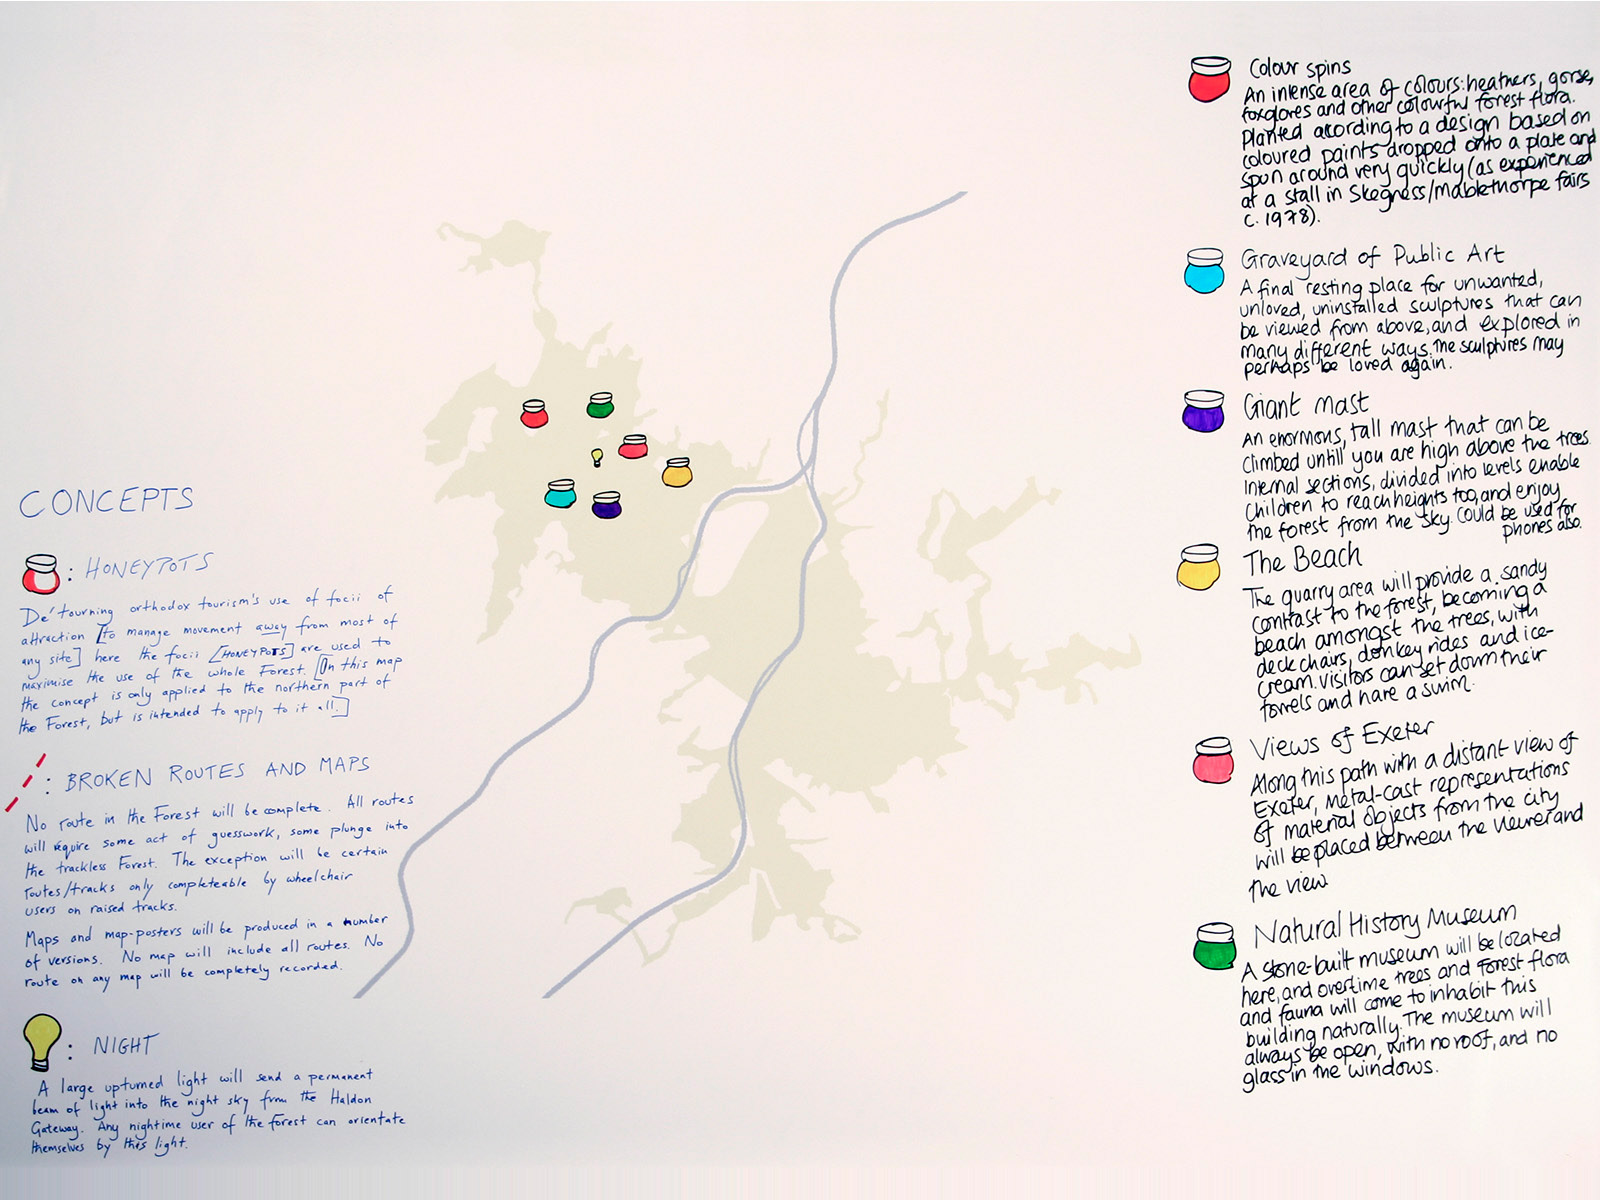 CONCEPTS
: HONEYPOTS
De'tourning orthodox tourism's use of focii of
attraction [to manage movement away from most of
any site] here the focii [HONEYPOTS] are used to
maximise the use of the whole Forest. [On this map
the concept is only applied to the northern part of
the Forest, but is intended to apply to it all.]
: BROKEN ROUTES AND MAPS
No route in the Forest will be complete. All routes
will require some act of guesswork, some plunge into
the trackless Forest. The exception will be certain
routes/tracks only completeable by wheelchair
users on raised tracks.
Maps and map-posters will be produced in a number
of versions. No map will include all routes. No
route on any map will be completely recorded.
: NIGHT
A large upturned light will send a permanent
beam of light into the night sky from the Haldon
Gateway. Any nightime user of the forest can orientate
themselves by this light.
Colour spins
An intense area of colours: heathers, gorse,
foxgloves and other colourful forest flora.
Planted according to a design based on
coloured paints dropped onto a plate and
spun around very quickly (as experienced
at a stall in Skegness/Mablethorpe fairs
c. 1978).
Graveyard of Public Art
A final resting place for unwanted,
unloved, uninstalled sculptures that can
be viewed from above, and explored in
many different ways. The sculptures may
perhaps be loved again.
Giant Mast
An enormous, tall mast that can be
climbed untill you are high above the trees.
Internal sections, divided into levels enable
children to reach heights too, and enjoy
the forest from the sky. Could be used for
phones also.
The Beach
The quarry area will provide a sandy
contrast to the forest, becoming a
beach amongst the trees, with
deck chairs, donkey rides and ice-
cream. Visitors can set down their
towels and have a swim.
Views of Exeter
Along this path with a distant view of
Exeter, metal-cast representations
of material objects from the city
will be placed between the viewer and
the view
Natural History Museum
A stone-built museum will be located
here, and overtime trees and forest flora
and fauna will come to inhabit this
building naturally. The museum will
always be open, with no roof, and no
glass in the windows.